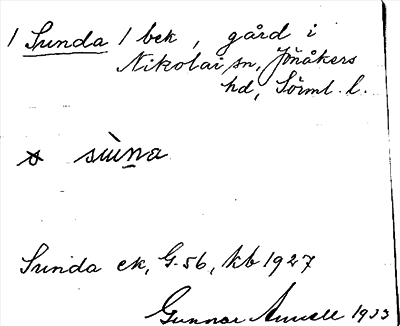 / Sunda / bek, gård i
Nikolai sn, Jönåkers
hd, Sörml. l.
sùṉa
Sunda ek, G-56, kb 1927
Gunnar 1933